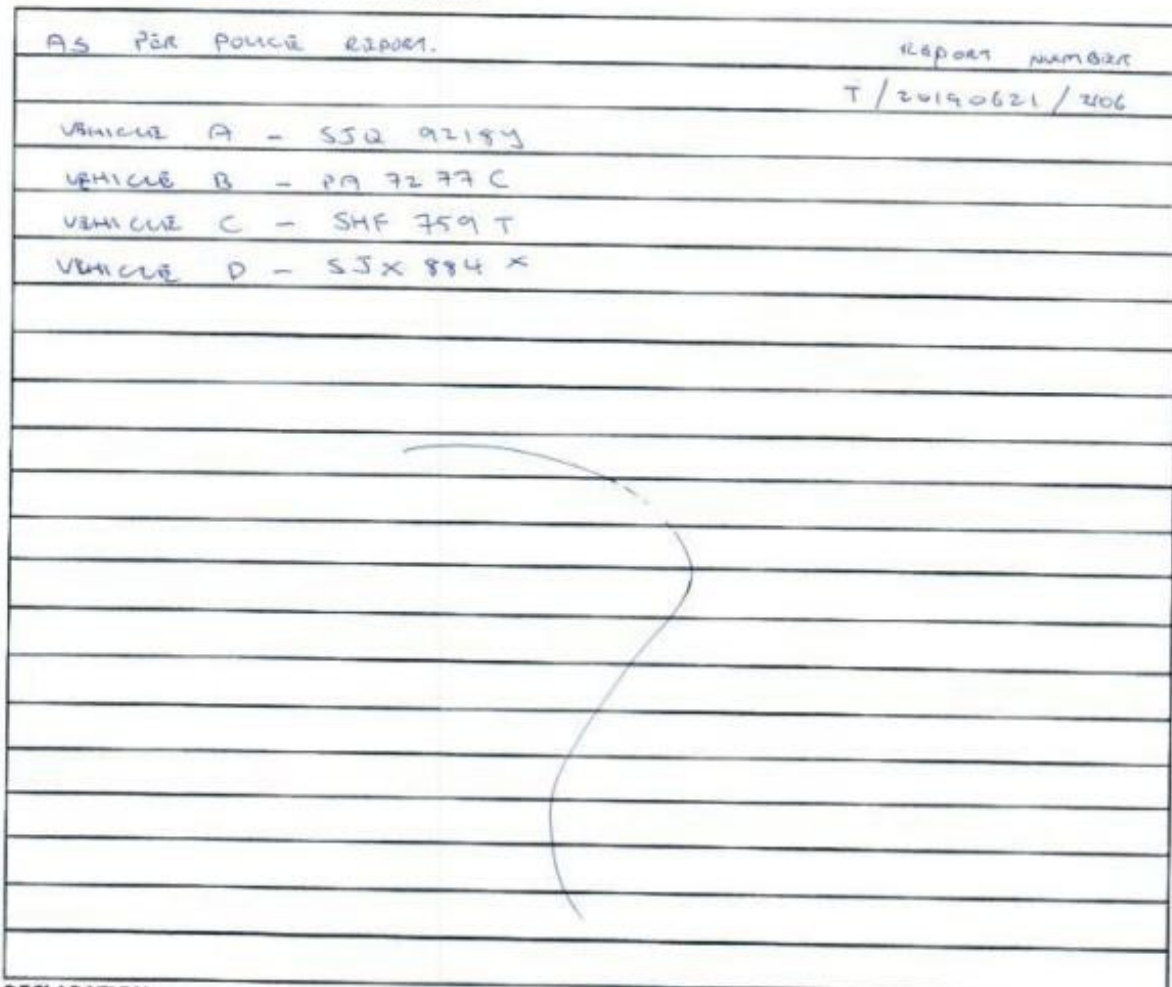 AS PER POLICE REPORT.
REPORT NUMBER
T / 20190621 / 2106
VEHICLE A - SJQ 9218Y
VEHICLE B - PA 7277C
VEHICLE C - SHF 759T
VEHICLE D - SJX 884X